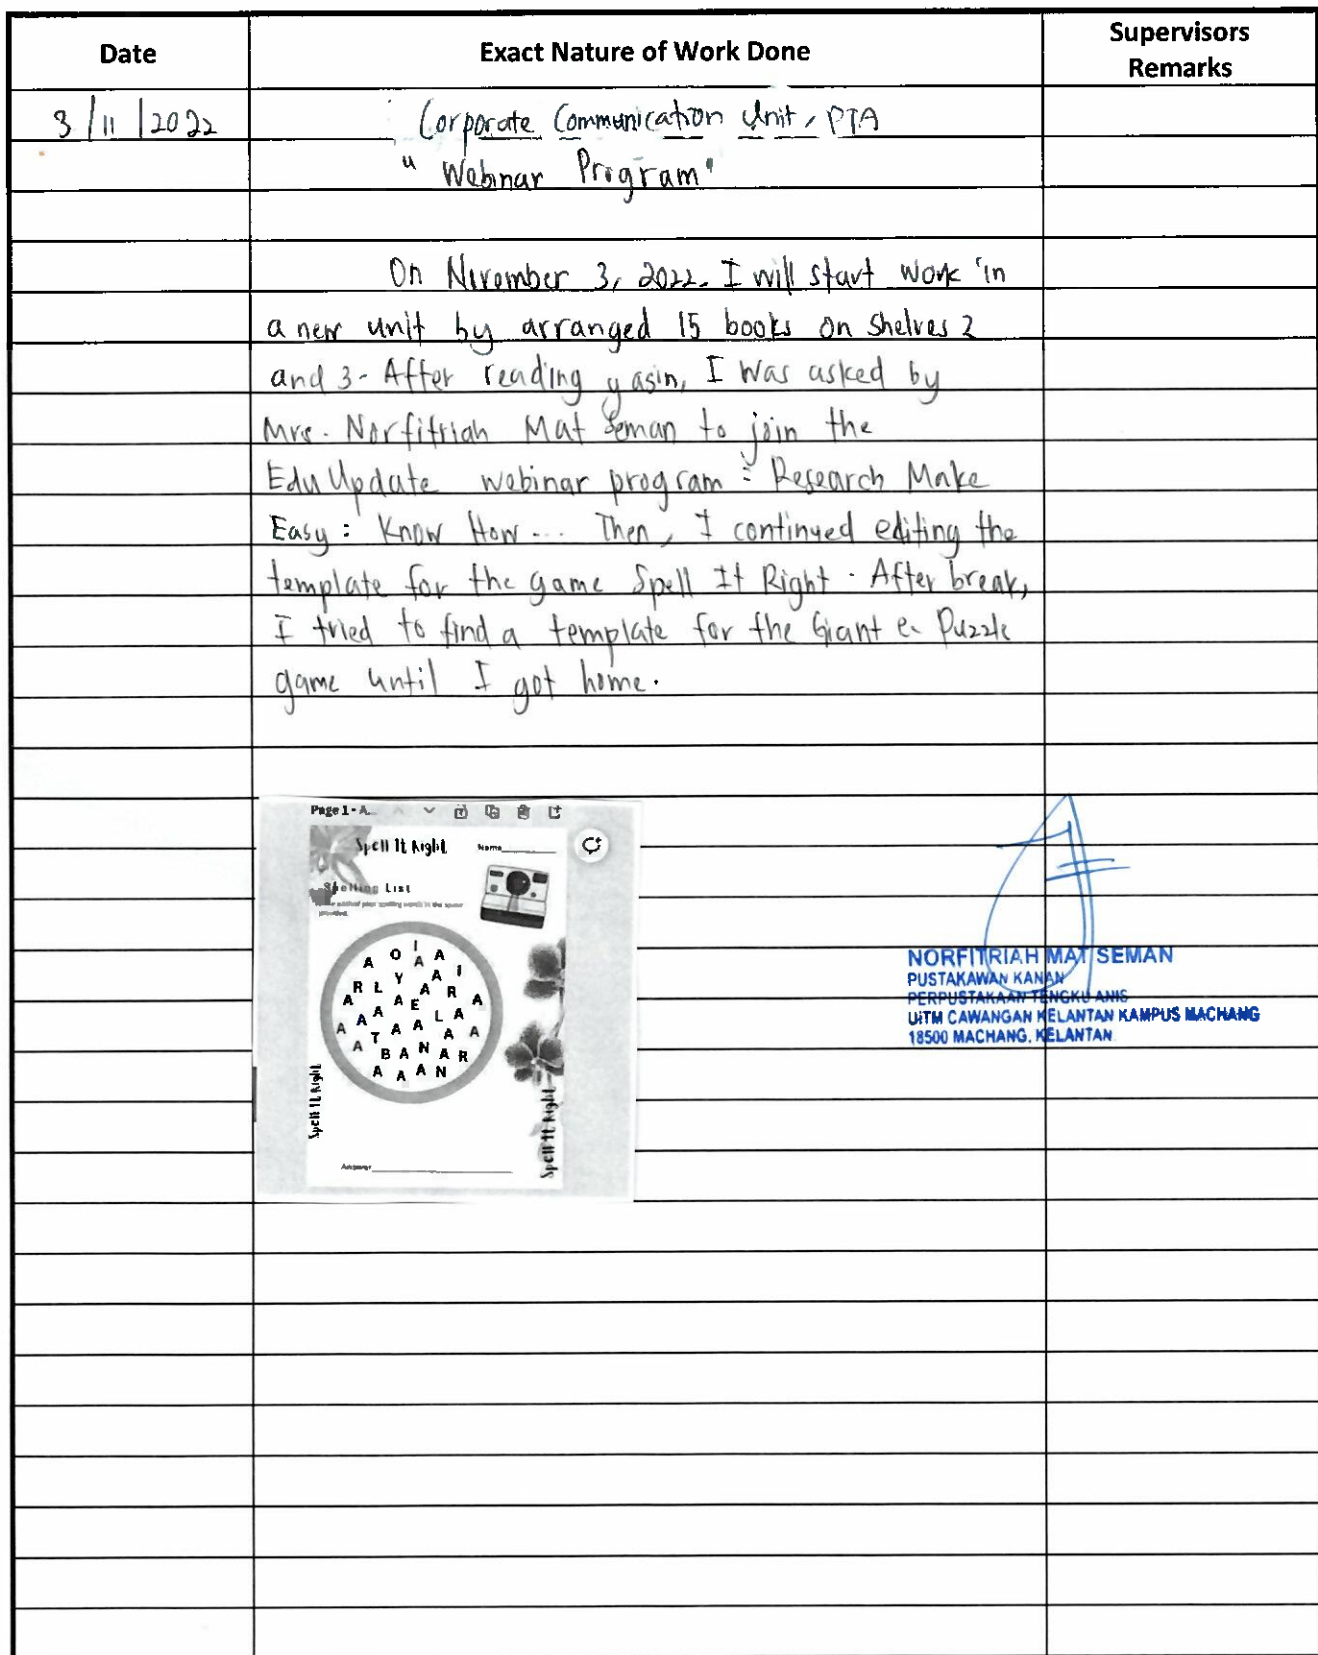 Date Exact Nature of Work Done Supervisors Remarks
3/11/2022 Corporate Communication Unit, PTA
"Webinar Program"
On November 3, 2022. I will start work in
a new unit by arranged 15 books on shelves 2
and 3. After reading yasin, I was asked by
Mrs. Norfitriah Mat Seman to join the
EduUpdate webinar program : Research Make
Easy : Know How... Then, I continued editing the
template for the game Spell It Right. After break,
I tried to find a template for the Giant e-Puzzle
game until I got home.
Page 1 - A...
Spell It Right Name
Spelling List
your spelling words in the space
provided.
I
A O A A
Y A I
A R L A E A R A
A A A A A L A A
A T B A N A R
A A A N
Spell It Right
Spell It Right
Answer
NORFITRIAH MAT SEMAN
PUSTAKAWAN KANAN
PERPUSTAKAAN TENGKU ANIS
UiTM CAWANGAN KELANTAN KAMPUS MACHANG
18500 MACHANG, KELANTAN